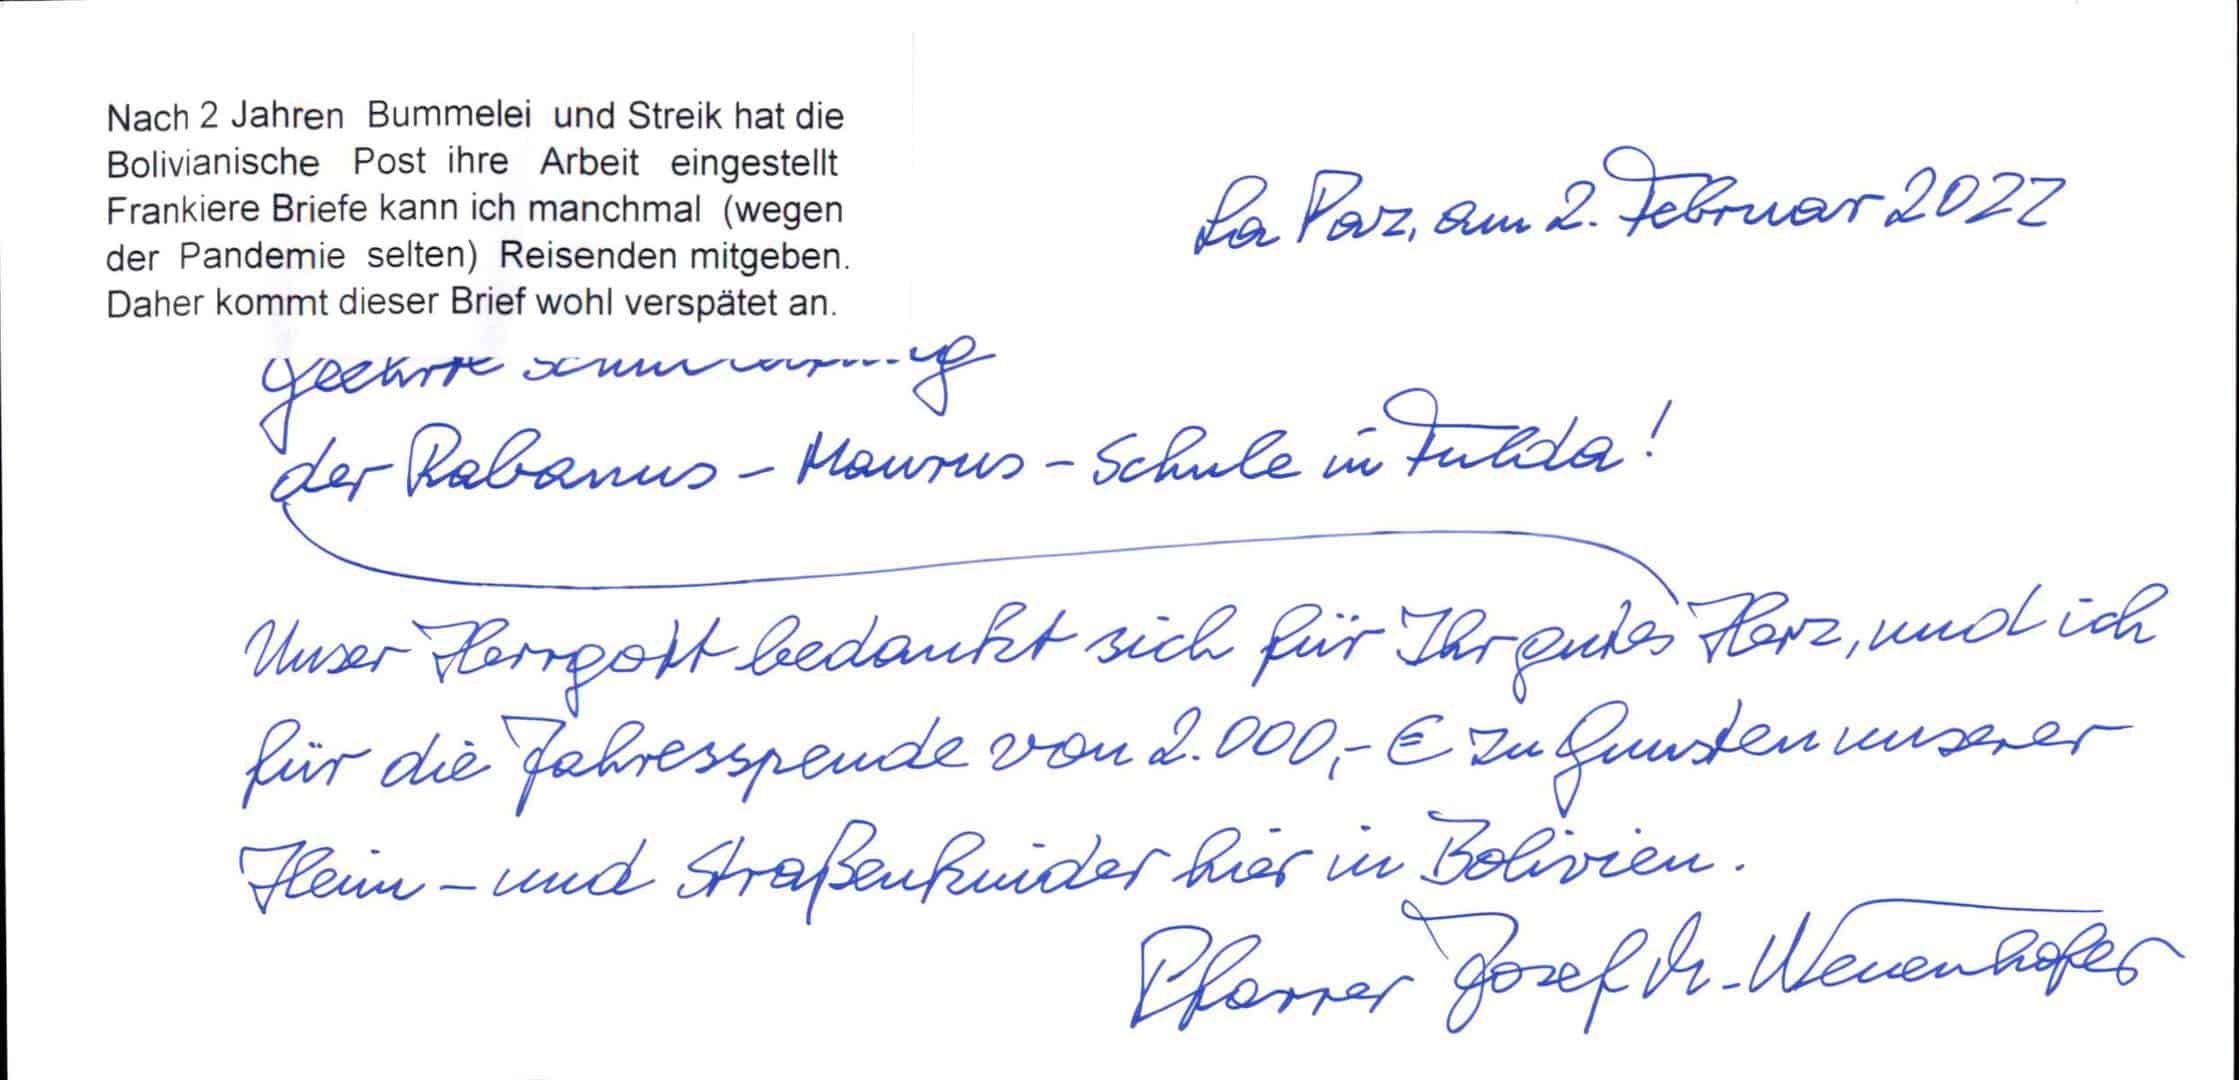 Nach 2 Jahren Bummelei und Streik hat die
Bolivianische Post ihre Arbeit eingestellt
Frankiere Briefe kann ich manchmal (wegen
der Pandemie selten) Reisenden mitgeben.
Daher kommt dieser Brief wohl verspätet an.
La Paz, am 2. Februar 2022
geehrte
der Rabanus-Maurus-Schule in Fulda!
Unser Herrgott bedankt sich für Ihr gutes Herz, und ich
für die Jahresspende von 2.000,- € zu Gunsten unserer
Heim- und Straßenkinder hier in Bolivien.
Pfarrer Josef M. Neuenhofer